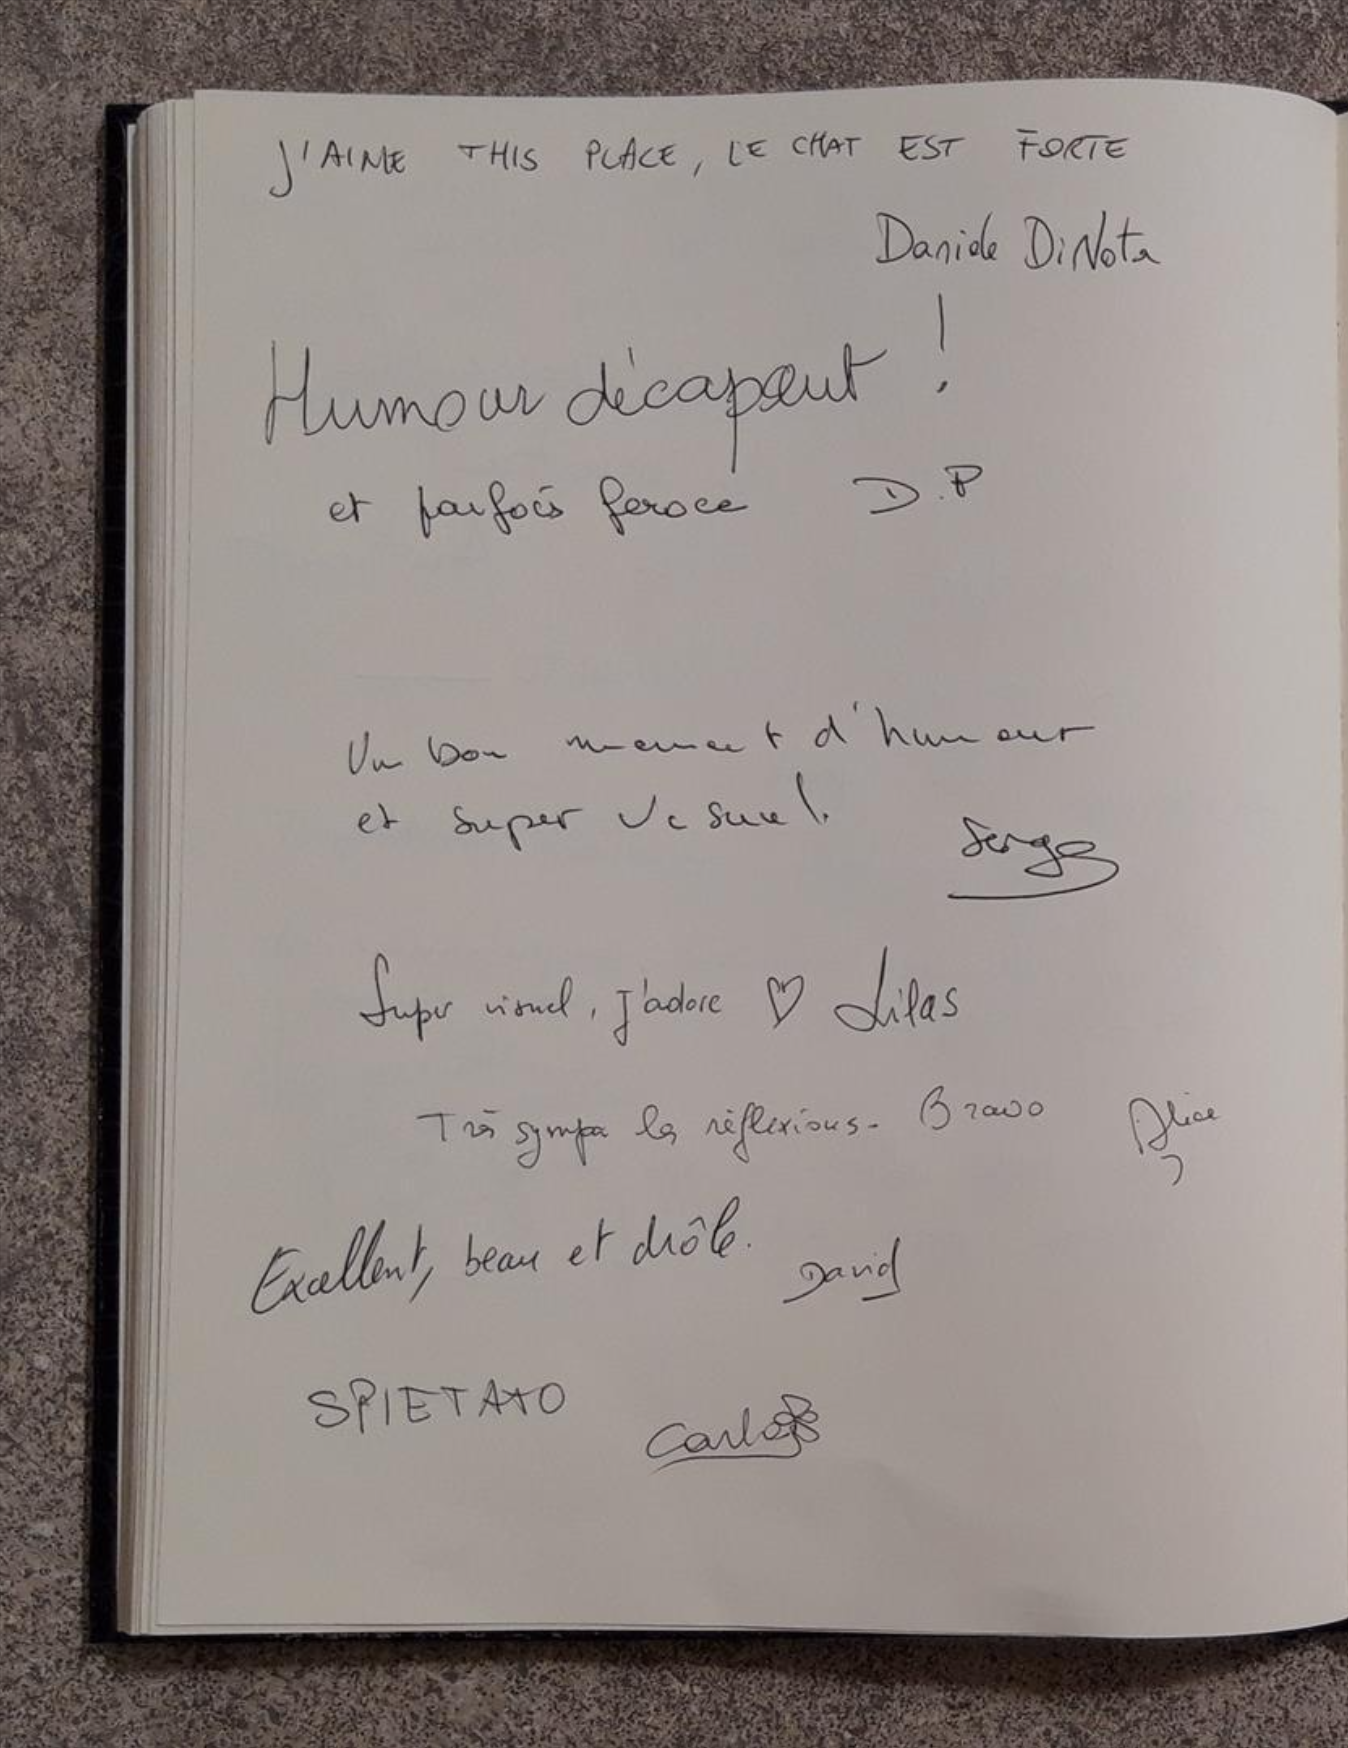 J'AIME THIS PLACE, LE CHAT EST FORTE
Daniele DiNota
Humour décapant !
et parfois feroce D.P
Un bon moment d'humour
et super visuel.
Serge
Super visuel, j'adore ♡ Lilas
Très sympa les réflexions - Bravo Alice
Excellent, beau et drôle. David
SPIETATO
Carlo